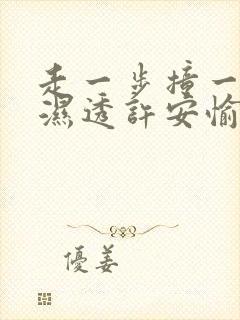 走一步撞一
濕透許安愉
優姜